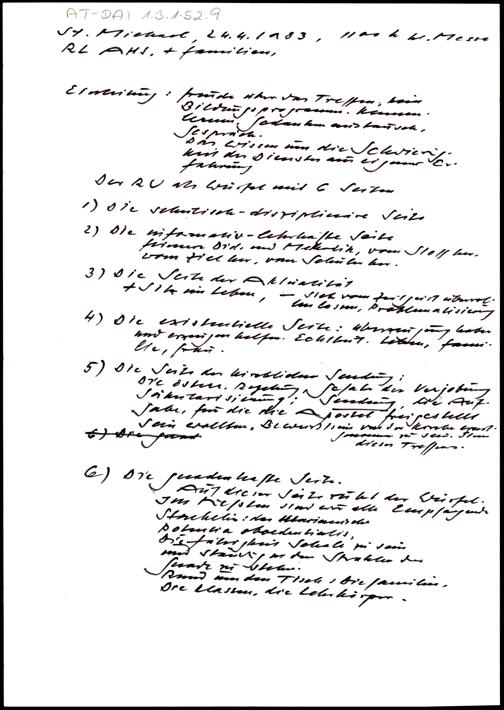 AT-DAI 1.3.1.52.9
St. Michael, 24.4.1983, nach d. Messe
RL AHS, + Familien,
Einleitung: Freude über das Treffen, kein
Bildungsprogramm. Kennen-
lernen, Gedankenaustausch,
Gespräch.
Das Wissen um die Schwierig-
keit des Dienstes aus eigener Er-
fahrung
Der RU als Würfel mit 6 Seiten
1) Die schulisch-disziplinäre Seite
2) Die informativ-lehrhafte Seite
Did. und Methodik, vom Stoff her.
vom Ziel her, vom Schüler her.
3) Die Seite der Aktualität
+ Sitz im Leben, – sich vom Zeitgeist
Problematisierung
4) Die existentielle Seite: Überzeugung haben
und erzeugen helfen. Echtheit. Leben, Fami-
lie, Frau.
5) Die Seite der kirchlichen Sendung:
Die österr. Regelung, Gefahr der
Säkularisierung; Sendung, die Auf-
gabe, für die die Apostel freigestellt
sein wollten, Bewusstsein von der Kirche ernst-
genommen zu sein. Sinn
dieses Treffens.
6) Die ganz
6) Die gnadenhafte Seite.
Auf dieser Seite ruht der Würfel.
Im Tiefsten sind wir alle Empfangende
das Marianische
Potentia oboedentialis,
Die Fähigkeit Schale zu sein
und ständig in den Strahlen der
Gnade zu stehen.
Rund um den Tisch: Die Familien,
Die Klassen, die Lehrkörper.